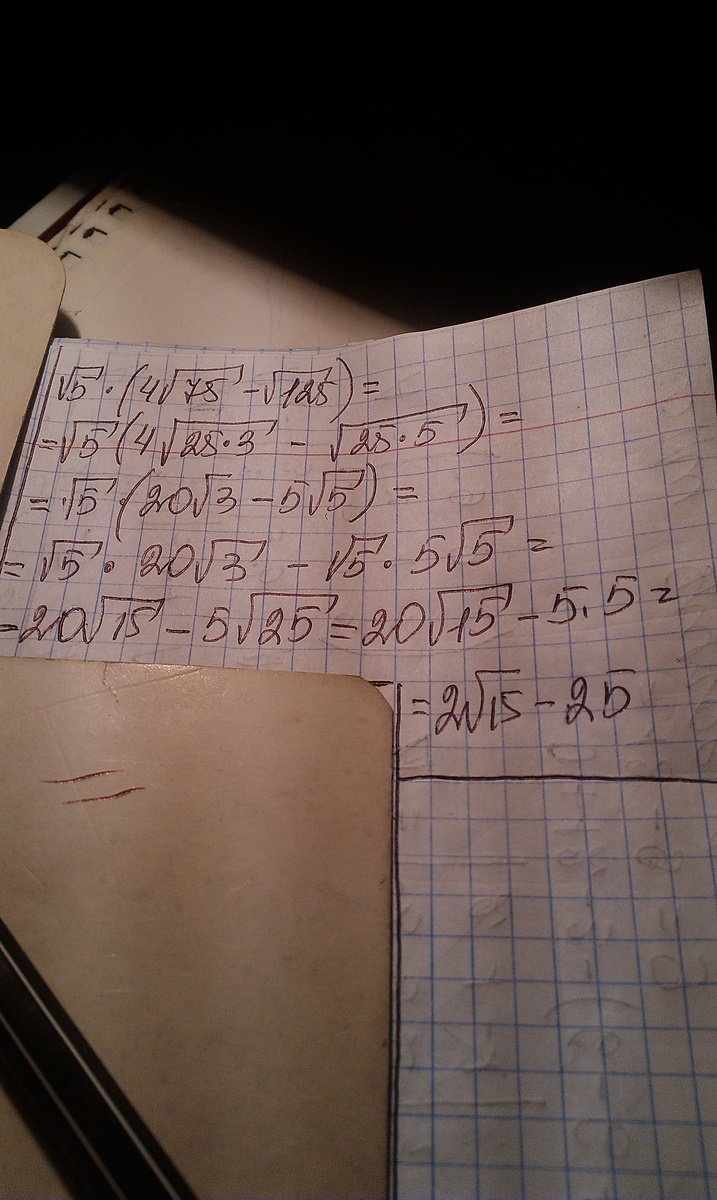 √5 · (4√75 - √125) =
= √5 (4√25·3 - √25·5) =
= √5 · (20√3 - 5√5) =
= √5 · 20√3 - √5 · 5√5 =
= 20√15 - 5√25 = 20√15 - 5·5 =
= 2√15 - 25